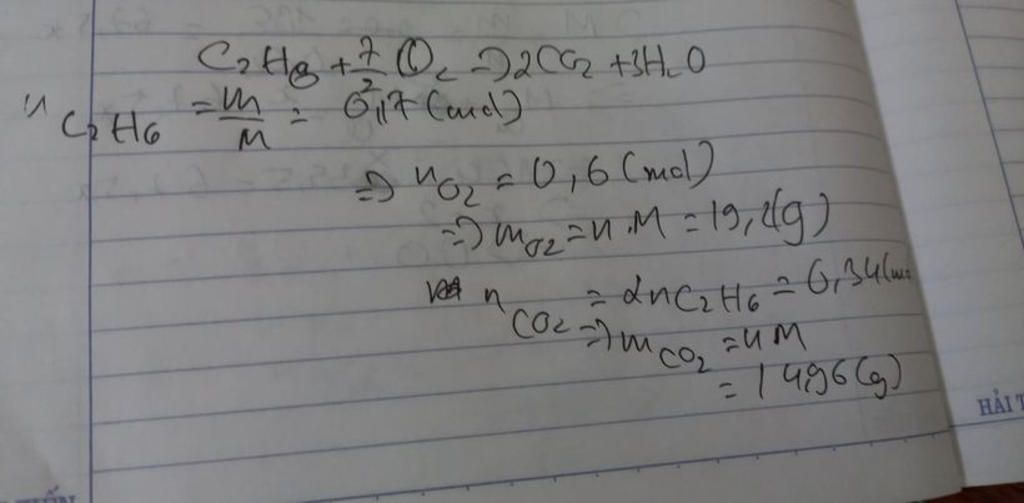 C₂H₆ + 7/2 O₂ => 2CO₂ + 3H₂O
n C₂H₆ = m/M = 0,17 (mol)
=> n O₂ = 0,6 (mol)
=> m O₂ = n.M = 19,2(g)
n CO₂ = 2n C₂H₆ = 0,34 (mo
=> m CO₂ = n M
= 14,96 (g)
HẢI T